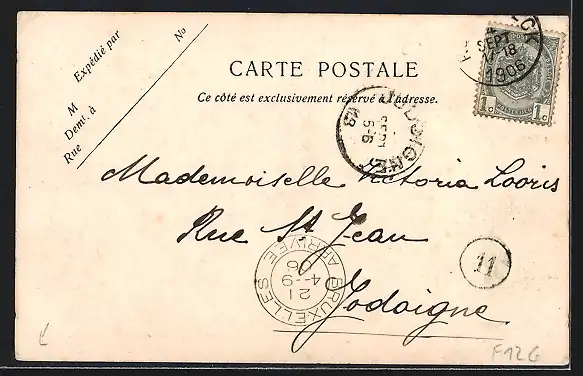 Expédié par
No
M
Demt. à
Rue
CARTE POSTALE
Ce côté est exclusivement réservé à l'adresse.
SEPT
18
1906
1c 1c
JODOIGNE
SEPT
5-6
Mademoiselle Victoria Looris
Rue St Jean
Jodoigne
BRUXELLES
ARRIVÉE
21
4-9
11
F12G